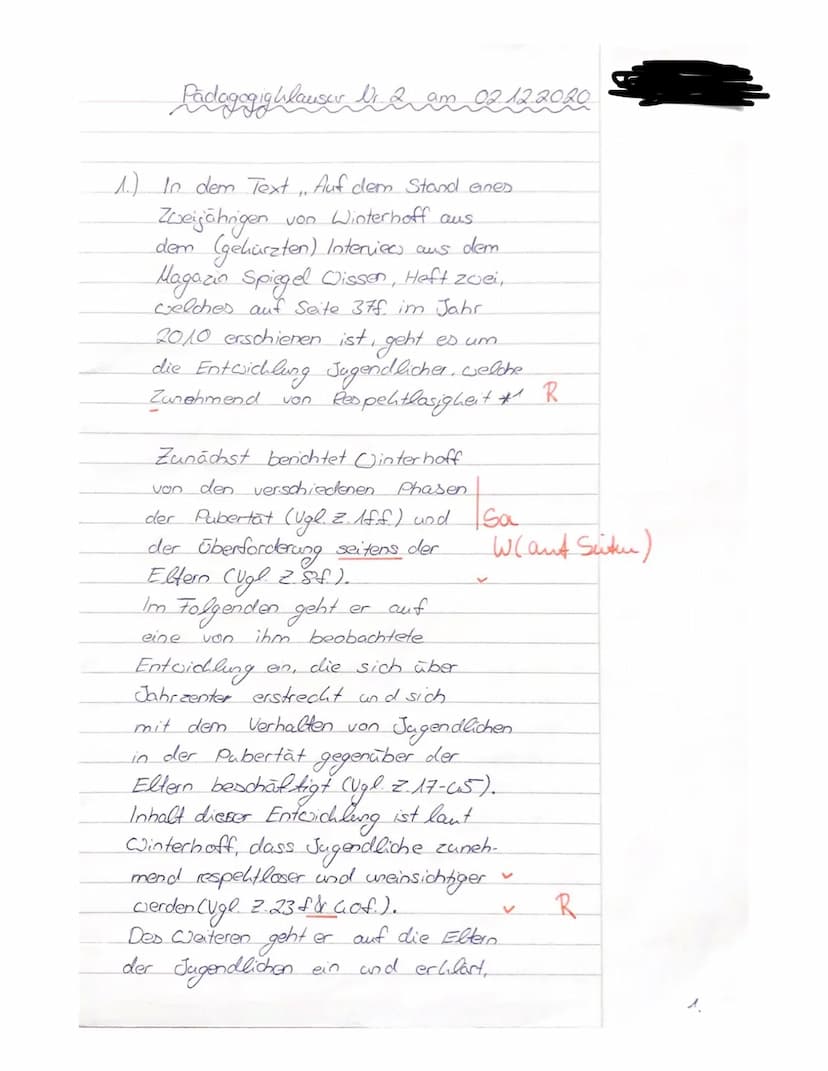 Pädagogigklausur Nr. 2 am 02.12.2020
1.) In dem Text „Auf dem Stand eines
Zweijährigen von Winterhoff aus
dem (gekürzten) Interview aus dem
Magazin Spiegel Wissen, Heft zwei,
welches auf Seite 37f. im Jahr
2010 erschienen ist, geht es um
die Entwicklung Jugendlicher, welche
Zunehmend von Respektlosigkeit *1 R
Zunächst berichtet Winterhoff
von den verschiedenen Phasen
der Pubertät (Vgl. Z. 1ff.) und Sa
der Überforderung seitens der W(auf Seiten)
Eltern (Vgl. Z. 8f.).
Im Folgenden geht er auf
eine von ihm beobachtete
Entwicklung en, die sich über
Jahrzenter erstreckt und sich
mit dem Verhalten von Jugendlichen
in der Pubertät gegenüber der
Eltern beschäftigt (Vgl. Z. 17-45).
Inhalt dieser Entwicklung ist laut
Winterhoff, dass Jugendliche zuneh-
mend respektloser und uneinsichtiger
werden (Vgl. Z. 23f & 40f.). R
Des Weiteren geht er auf die Eltern
der Jugendlichen ein und erklärt,
1.